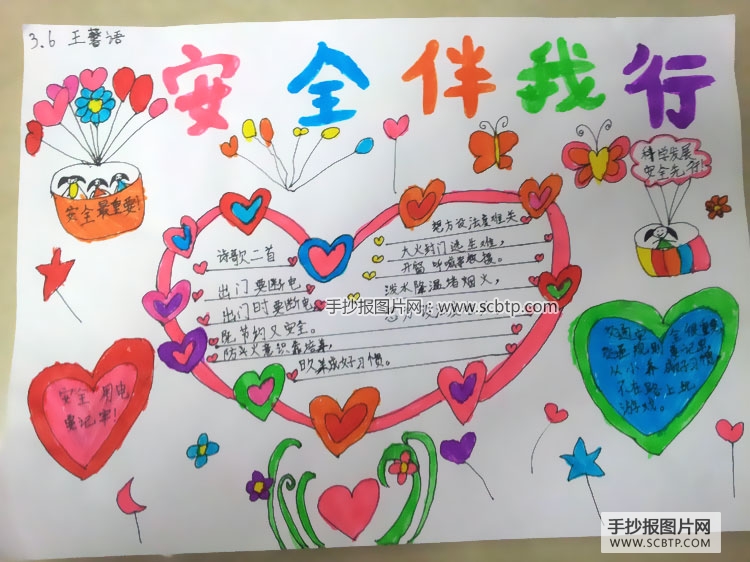 3.6 王馨语
安全伴我行
安全最重要
科学发展
安全先行
诗歌二首
出门要断电
出门时要断电,
既节约又安全。
防火意识靠培养,
从小养成好习惯。
想方设法离难关
大火封门逃生难,
开窗呼喊要救援。
泼水降温堵烟火,
手抄报图片网:www.scbtp.com
安全用电
要记牢!
交通安全很重要
交通规则要记牢
从小养成好习惯
不在路上玩
游戏。
手抄报图片网
WWW.SCBTP.COM